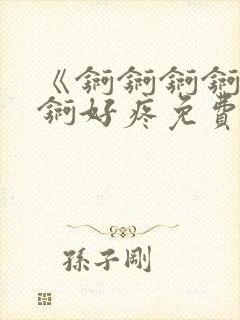 《锕锕锕锕
锕好疼免費
孫子剛